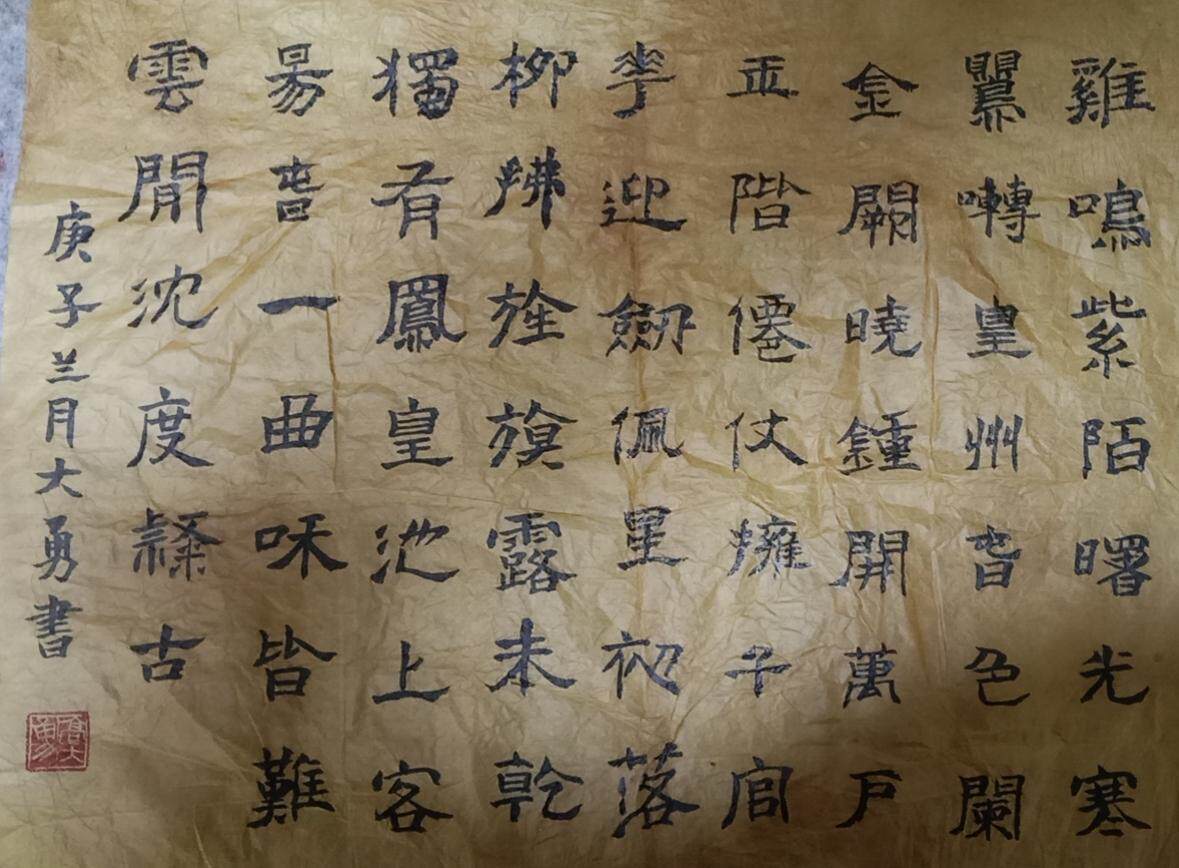 雞鳴紫陌曙光寒
鸎囀皇州春色闌
金闕曉鍾開萬戶
玉階僊仗擁千官
華迎劒佩星初落
柳拂旌旗露未乾
獨有鳳皇池上客
昜春一曲和皆難
雲閒沈度隸古
庚子兰月大勇書